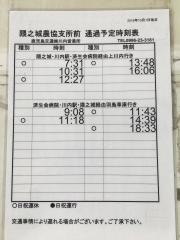 隈之城農協支所前 通過予定時刻表
鹿児島交通㈱川内営業所 TEL0996-23-3181
種別 時刻 種別 時刻
隈之城・川内駅・済生会病院経由上川内行き
○ 7:31 ○ 13:48
10:31 16:06
○ 12:27
種別 時刻 種別 時刻
済生会病院・川内駅・隈之城経由羽島車庫行き
9:08 ○ 11:43
○ 11:18 14:39
○ 18:33
○日祝運休 ◎日祝運行
交通事情により遅れる場合がございます。ご了承下さい。